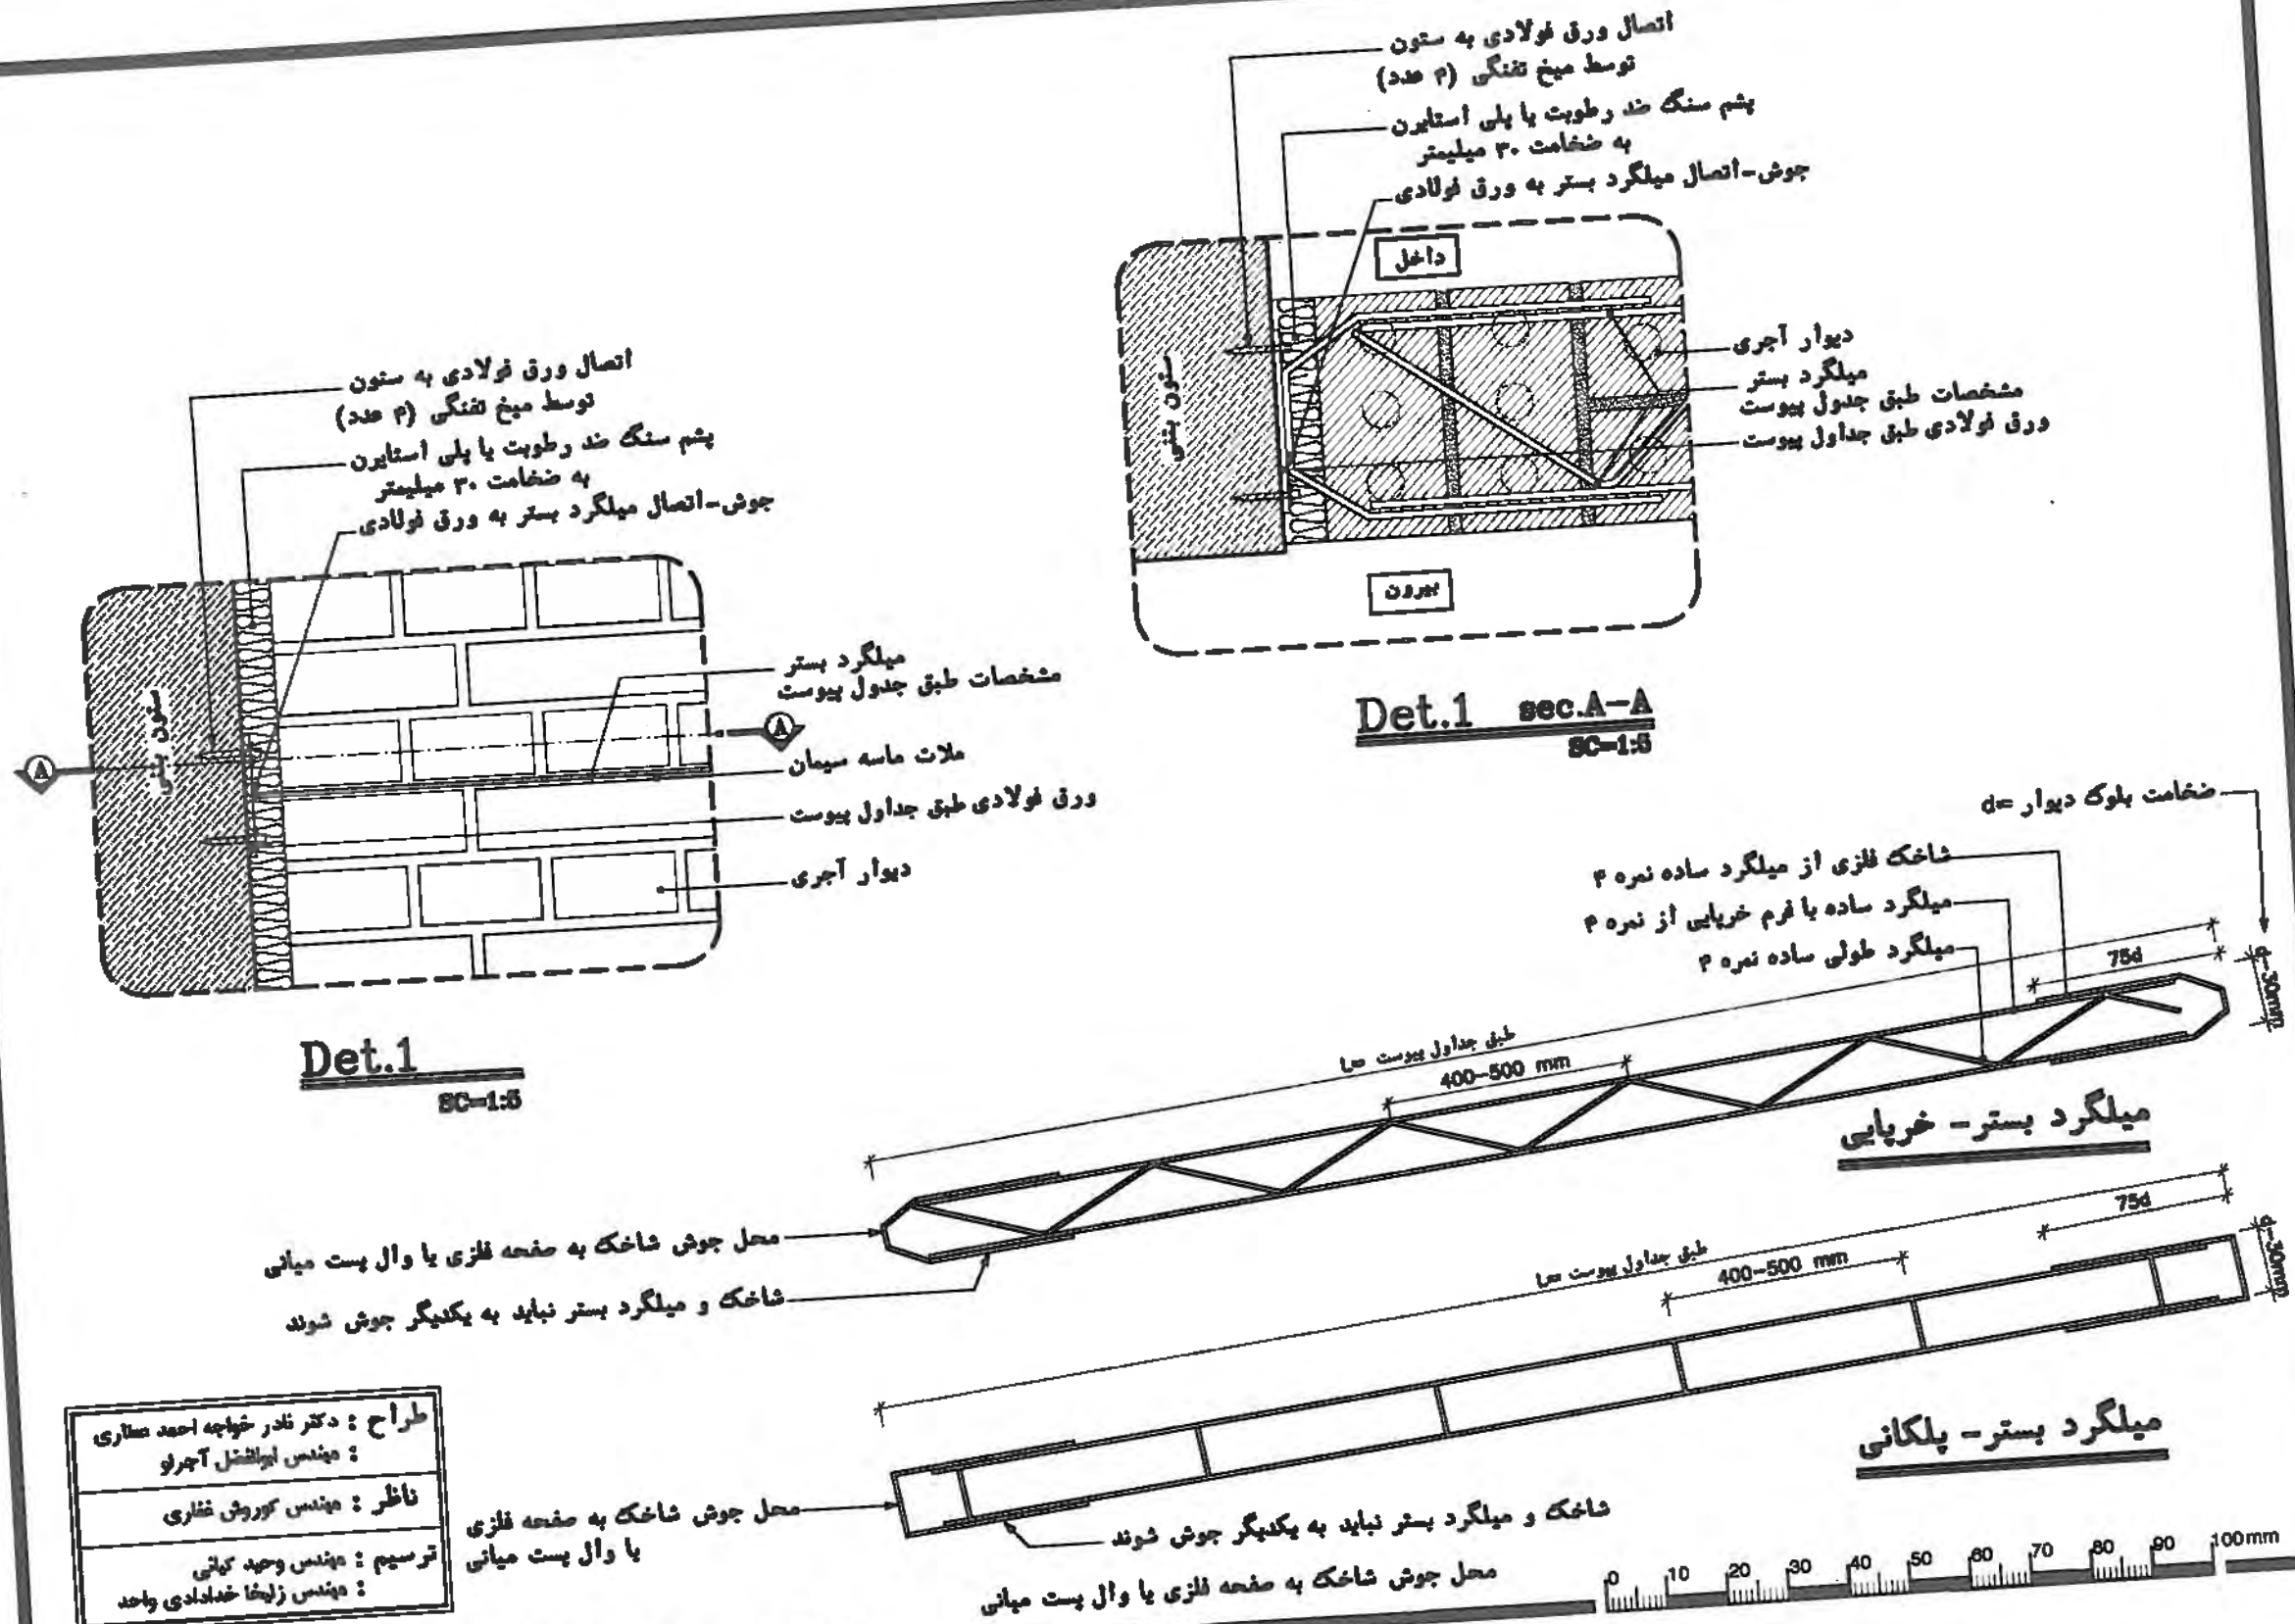 اتصال ورق فولادی به ستون
توسط میخ تفنگی (۴ عدد)
پشم سنگ ضد رطوبت یا پلی استایرن
به ضخامت ۳۰ میلیمتر
جوش-اتصال میلگرد بستر به ورق فولادی
داخل
ستون بتنی
دیوار آجری
میلگرد بستر
مشخصات طبق جدول پیوست
ورق فولادی طبق جداول پیوست
بیرون
Det.1 sec.A-A
SC=1:5
اتصال ورق فولادی به ستون
توسط میخ تفنگی (۴ عدد)
پشم سنگ ضد رطوبت یا پلی استایرن
به ضخامت ۳۰ میلیمتر
جوش-اتصال میلگرد بستر به ورق فولادی
ستون بتنی
میلگرد بستر
مشخصات طبق جدول پیوست
A
A
ملات ماسه سیمان
ورق فولادی طبق جداول پیوست
دیوار آجری
Det.1
SC=1:5
ضخامت بلوک دیوار =d
شاخک فلزی از میلگرد ساده نمره ۴
میلگرد ساده با فرم خرپایی از نمره ۴
میلگرد طولی ساده نمره ۴
75d
d-30mm
طبق جداول پیوست =L
400-500 mm
میلگرد بستر- خرپایی
محل جوش شاخک به صفحه فلزی یا وال پست میانی
شاخک و میلگرد بستر نباید به یکدیگر جوش شوند
75d
d-30mm
طبق جداول پیوست =L
400-500 mm
میلگرد بستر- پلکانی
محل جوش شاخک به صفحه فلزی
یا وال پست میانی
شاخک و میلگرد بستر نباید به یکدیگر جوش شوند
محل جوش شاخک به صفحه فلزی یا وال پست میانی
طراح : دکتر نادر خواجه احمد عطاری
: مهندس ابوالفضل آجرلو
ناظر : مهندس کوروش غفاری
ترسیم : مهندس وحید کیانی
: مهندس زلیخا خدادادی واحد
0 10 20 30 40 50 60 70 80 90 100mm